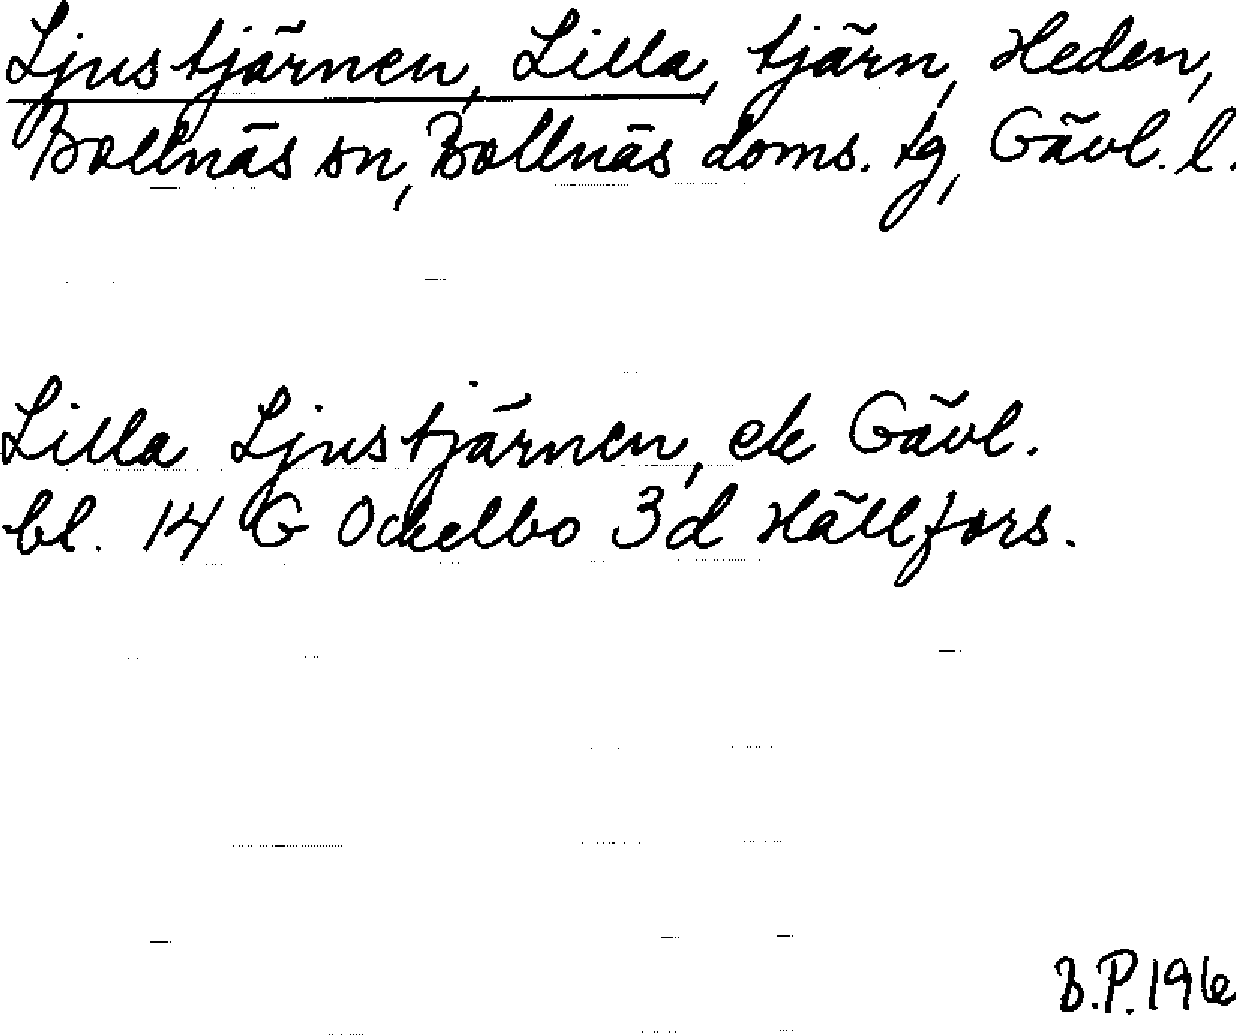 Ljustjärnen, Lilla, tjärn, Heden,
Bollnäs sn, Bollnäs doms. tg, Gävl. l.
Lilla Ljustjärnen, ek Gävl.
bl. 14 G Ockelbo 3d Hällfors.
B.P. 196